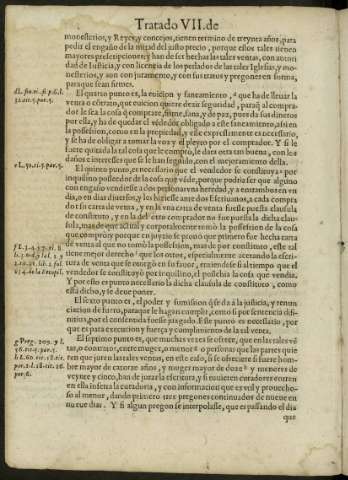 Tratado VII. de
monesterios, y Reyes, y concejos, tienen termino de treynta años, para
pedir el engaño de la mitad del justo precio, porque estos tales tienen
mayores prescripciones, y han de ser hechas las tales ventas, con autori
dad de Iusticia, y con licencia de los perlados de las tales Iglesias, y mo
nesterios, y aun con juramento, y con sus tratos y pregones en forma,
para que sean firmes.
El quarto punto es, la euicion y saneamiento, que ha de lleuar la
venta o cōtrato, que euicion quiere dezir seguridad, para q̃ al compra
dor le sea la cosa q̃ comprare, firme, sana, y de paz, pues da sus dineros
por ella, y ha de quedar el vēdedor obligado a este saneamiento, assi en
la possession, como en la propiedad, y esto expressamente es necessario,
y se ha de obligar a tomar la voz y el pleyto por el comprador. Y si le
fuere quitada la tal cosa que le compro, le dara otra tan buena, con los
daños e interesses que se le han seguido, con el mejoramiento della.
El quinto punto, es necessario que el vendedor se constituya por
inquilino posseedor de la cosa que vēde, porque podria ser que alguno
con engaño vendiesse a dos personas vna heredad, y a entrambos en vn
dia, o en dias diuersos, y les hiziesse ante dos Escriuanos, a cada compra
dor su carta de venta, y en la vna carta de venta fuesse puesta clausula
de constituto, y en la del otro comprador no fue puesta la dicha clausu
la, mas de que actual y corporalmente tomo la possession de la cosa
que compro, y porque en juyzio puesto que primero fue hecha carta
de venta al que no tomò la possession, mas de por constituto, este tal
tiene mejor derecho que los otros, especialmente auctando la escri
tura de venta que se otorgò en su fauor, en
vendedor se constituyò por inquilino, el posseia la cosa que vendia,
Y por esto es punto necessario la dicha clausula de constituto, como
està dicho, y se deue poner.
El sexto punto es, el poder y sumission q̃ se dà a la justicia, y renun
ciacion de fuero, para que le hagan cumplir, como si por sentencia difi
nitiua, por el consentida fuesse juzgado. Este punto es necessario, por
que es para execucion y fuerça y cumplimiento de la tal venta.
El septimo punto es, que muchas vezes se ofrece, que en las tales vē
tas, o contratos, entre muger, o menor o personas que las partes quie
ren que juren las tales ventas, en este caso, si se ofreciere si fuere hom-
bre mayor de catorze años, y muger mayor de doze y menores de
veynte y cinco, han de jurar la escritura, y si tuuieren curadores entren
en ella inserta la curaduria, y con informacion que es vtil y prouecho-
so al menor, dando primero tres pregones continuados de nueue en
nueue dias. Y si algun pregon se interpolasse, que es passando el dia
que